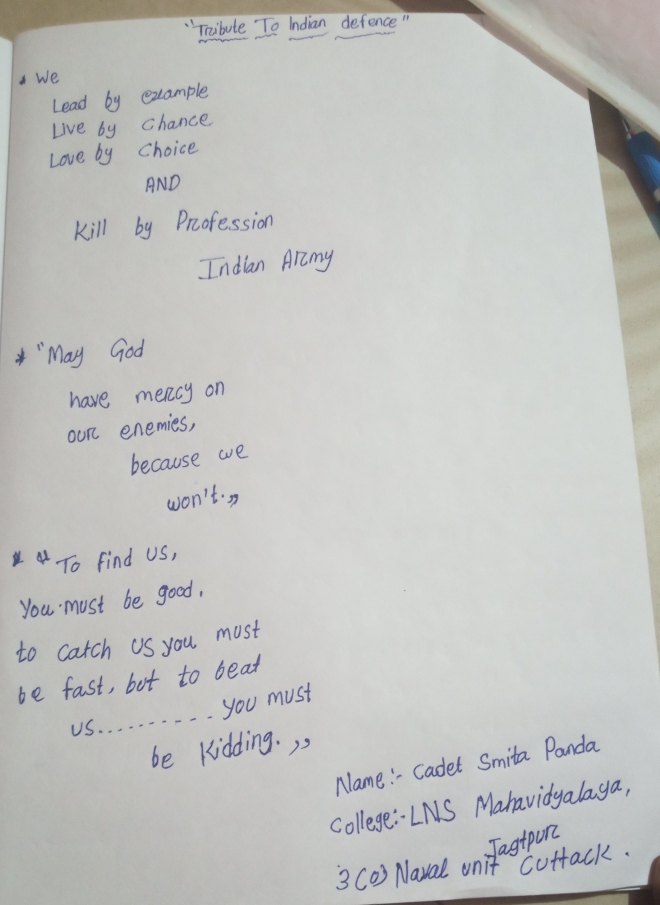 "Tribute To Indian defence"
• We
Lead by example
Live by Chance
Love by Choice
AND
Kill by Profession
Indian Army
* "May God
have mercy on
our enemies,
because we
won't.„
* " To find us,
You must be good,
to catch us you must
be fast, but to beat
us.......... you must
be kidding.„
Name:- Cadet Smita Panda
College:- LNS Mahavidyalaya,
Jagtpur
3(O) Naval unit Cuttack.